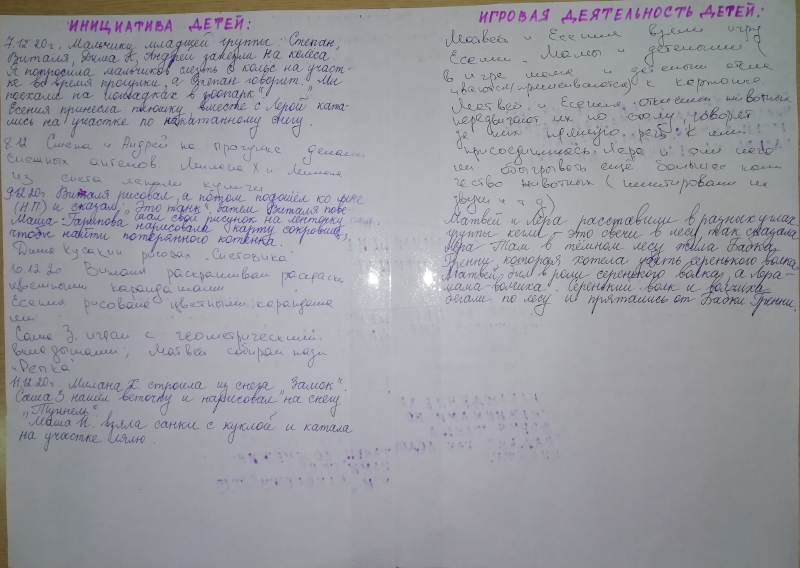 ИНИЦИАТИВА ДЕТЕЙ:
7.12.20г. Мальчики младшей группы: Степан,
Виталя, Дима К, Андрей залезли на колёса.
Я попросила мальчиков слезть с колёс на участ-
ке во время прогулки, а Степан говорит: "Мы
поехали на лошадках в зоопарк"!
Есения принесла плюшку, вместе с Лерой ката-
лись на участке по накатанному снегу.
8.12 Смена и Андрей на прогулке делали
снежных ангелов Милана Х и Милана
из снега лепили куличи
9.12.20г Виталя рисовал, а потом подошёл ко мне
(Н.П) и сказал, это танк", затем Виталя пове-
сил свой рисунок на ленточку
Маша Гарипова нарисовала "карту сокровищ,
чтобы найти потерянного котёнка.
Дима Кусакин рисовал Снеговика
10.12.20 Виталя раскрашивал раскраски
цветными карандашами
Есения рисовала цветными карандаша
ми
Саша З. играл с геометрическими
вкладышами; Матвей собирал пазл
"Репка"
11.12.20г. Милана Х строила из снега "Замок".
Саша З нашёл веточку и нарисовал на снегу
"Туннель"
Маша И. взяла санки с куклой и катала
на участке лялю.
ИГРОВАЯ ДЕЯТЕЛЬНОСТЬ ДЕТЕЙ:
Матвей и Есения взяли игру
Есении. Мамы и детёныши
в игре мама и детёныш
к карточке
Матвей и Есения животных
передвигают их по столу, говорят
за них прямую речь. К ним
присоединилась Лера и они нача
ли обыгрывать ещё большее коли
чество животных (имитировали их
звуки и т д)
Матвей и Лера расставили в разных углах
группы кегли - Это свечи в лесу, так сказала
Лера. Там в тёмном лесу жила Бабка
Гренни, которая хотела убить серенького волка.
Матвей был в роли серенького волка, а Лера-
мама-волчиха. Серенький волк и волчиха
бегали по лесу и прятались от Бабки Гренни.